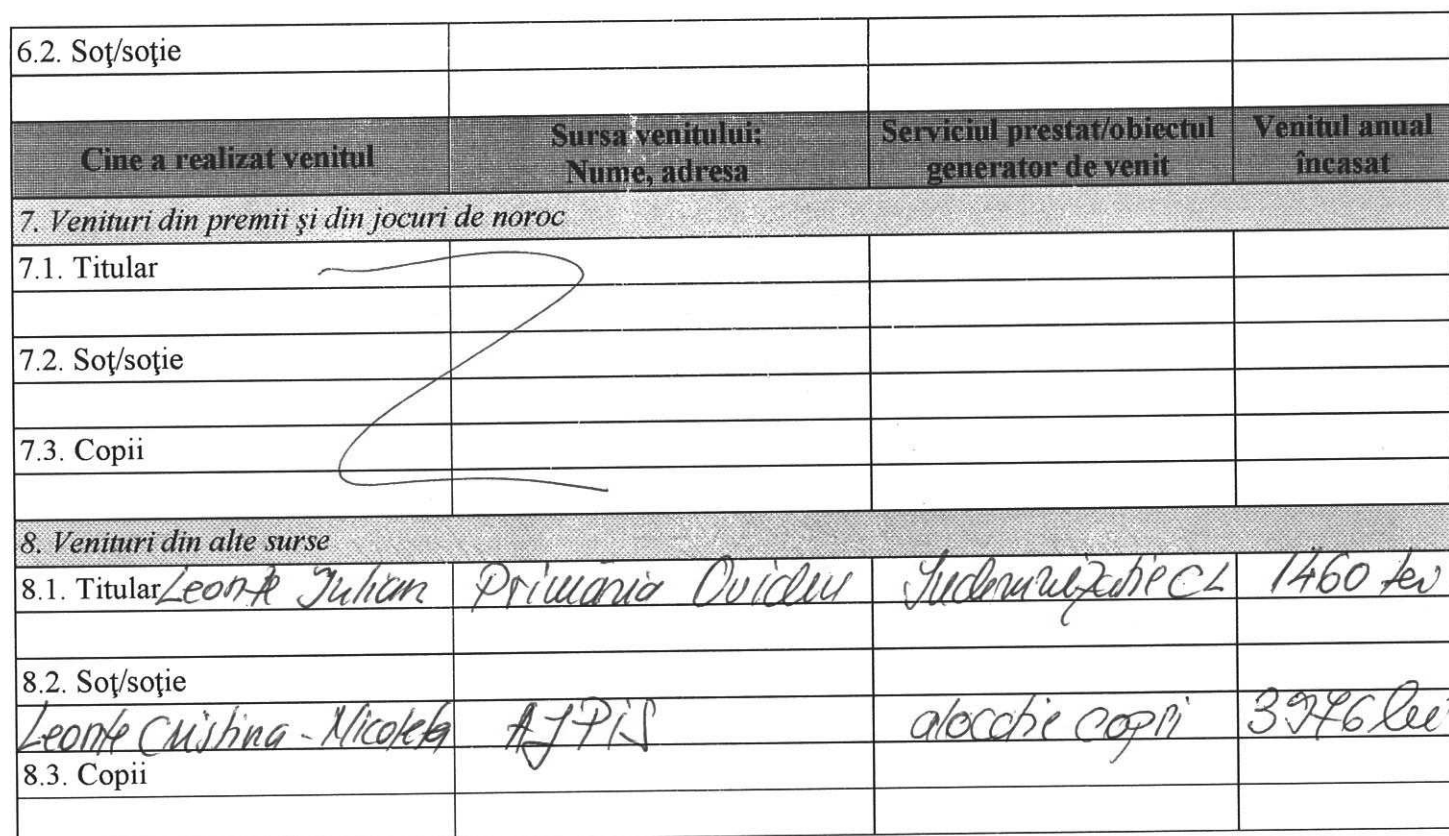 6.2. Soţ/soţie
Cine a realizat venitul Sursa venitului: Nume, adresa Serviciul prestat/obiectul generator de venit Venitul anual încasat
7. Venituri din premii şi din jocuri de noroc
7.1. Titular
7.2. Soţ/soţie
7.3. Copii
8. Venituri din alte surse
8.1. Titular Leonte Iulian Primăria Ovidiu Indemnizatie CL 1460 lei
8.2. Soţ/soţie
Leonte Cristina-Nicoleta AJPIS alocatie copii 3976 lei
8.3. Copii